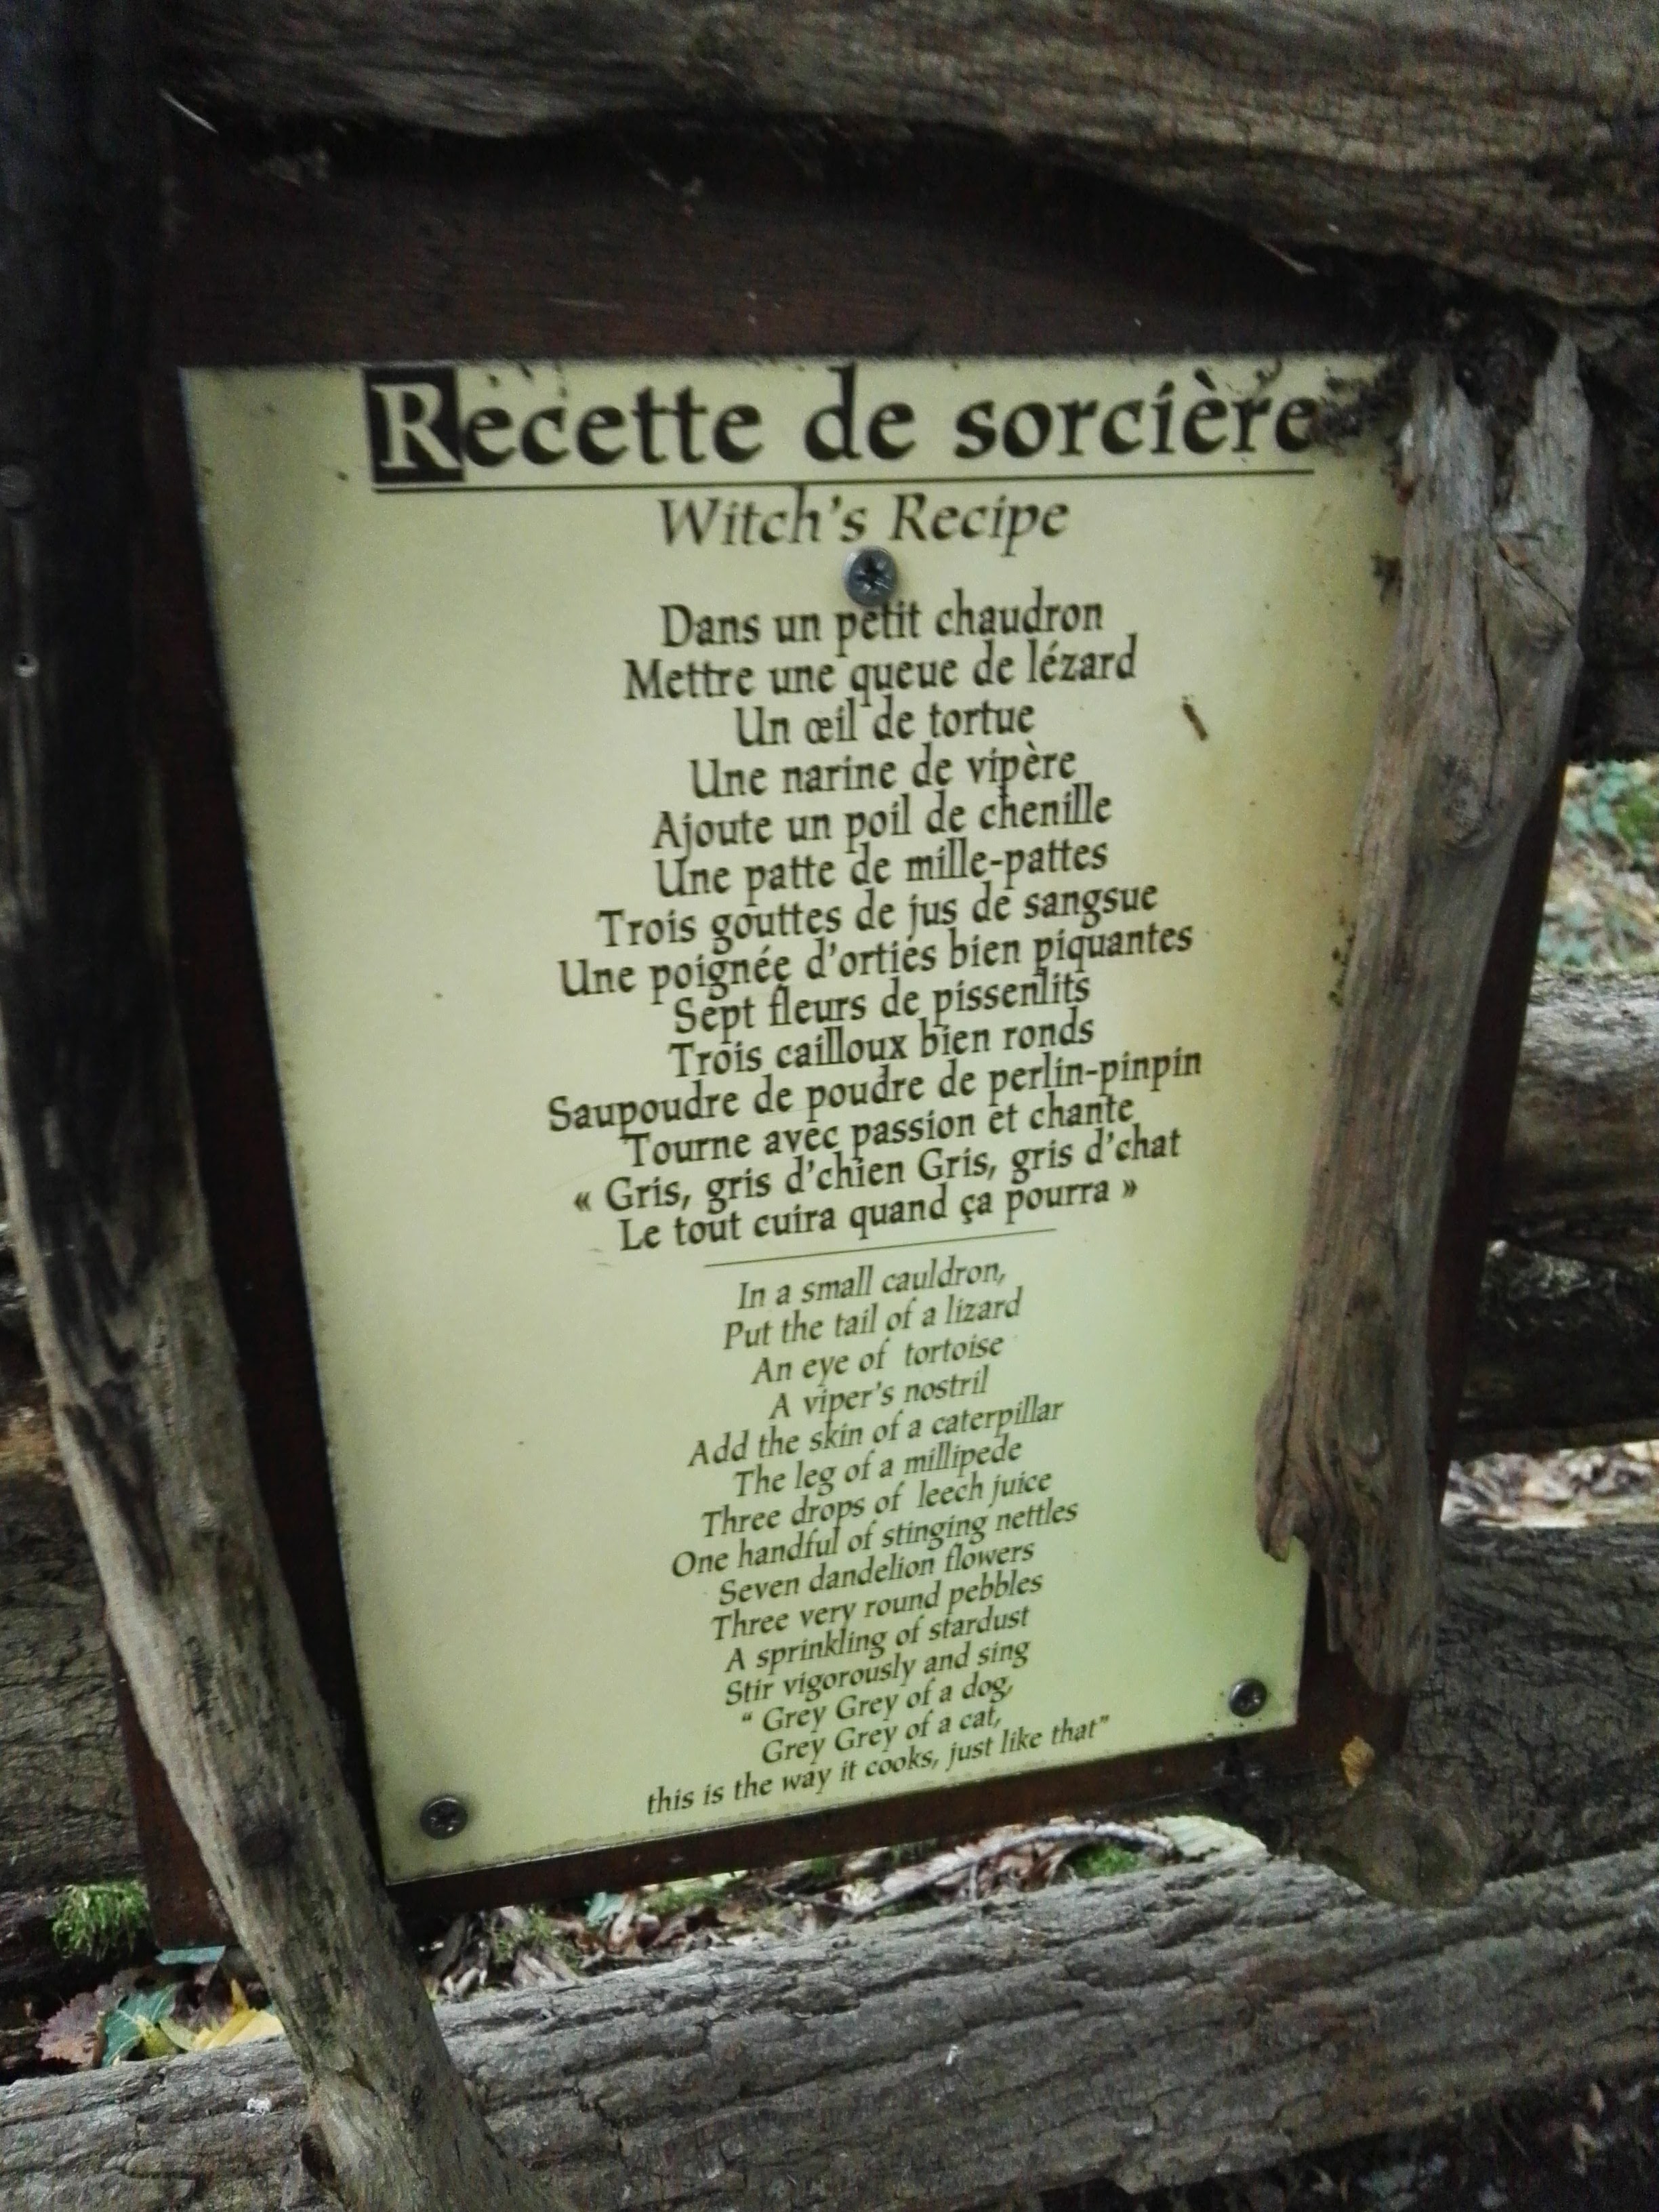 Recette de sorcière
Witch's Recipe
Dans un petit chaudron
Mettre une queue de lézard
Un œil de tortue
Une narine de vipère
Ajoute un poil de chenille
Une patte de mille-pattes
Trois gouttes de jus de sangsue
Une poignée d'orties bien piquantes
Sept fleurs de pissenlits
Trois cailloux bien ronds
Saupoudre de poudre de perlin-pinpin
Tourne avec passion et chante
« Gris, gris d'chien Gris, gris d'chat
Le tout cuira quand ça pourra »
In a small cauldron,
Put the tail of a lizard
An eye of tortoise
A viper's nostril
Add the skin of a caterpillar
The leg of a millipede
Three drops of leech juice
One handful of stinging nettles
Seven dandelion flowers
Three very round pebbles
A sprinkling of stardust
Stir vigorously and sing
“ Grey Grey of a dog,
Grey Grey of a cat,
this is the way it cooks, just like that”